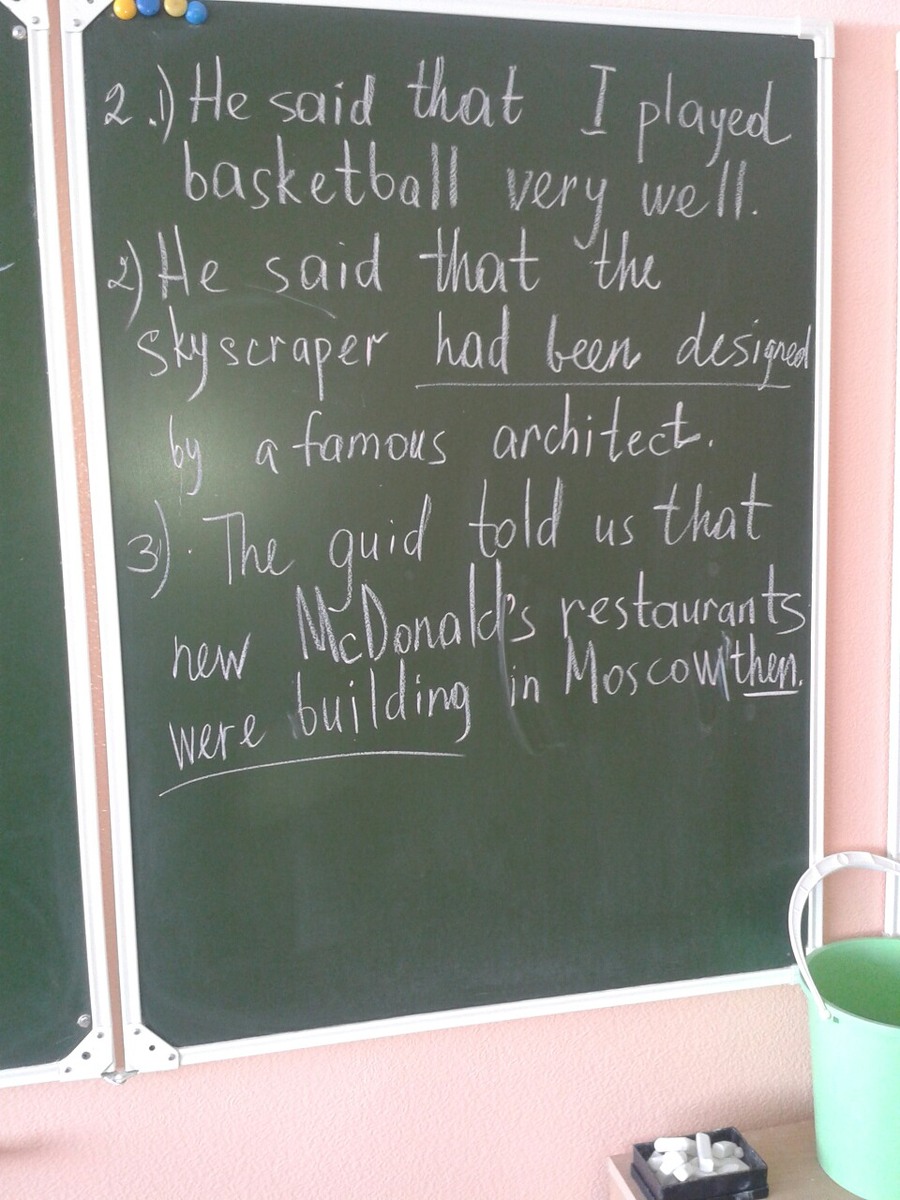 2.1) He said that I played
basketball very well.
2) He said that the
skyscraper had been designed
by a famous architect.
3). The guid told us that
new McDonald's restaurants
were building in Moscow then.